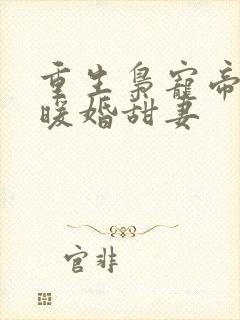 重生枭宠帝
暖婚甜妻
官非